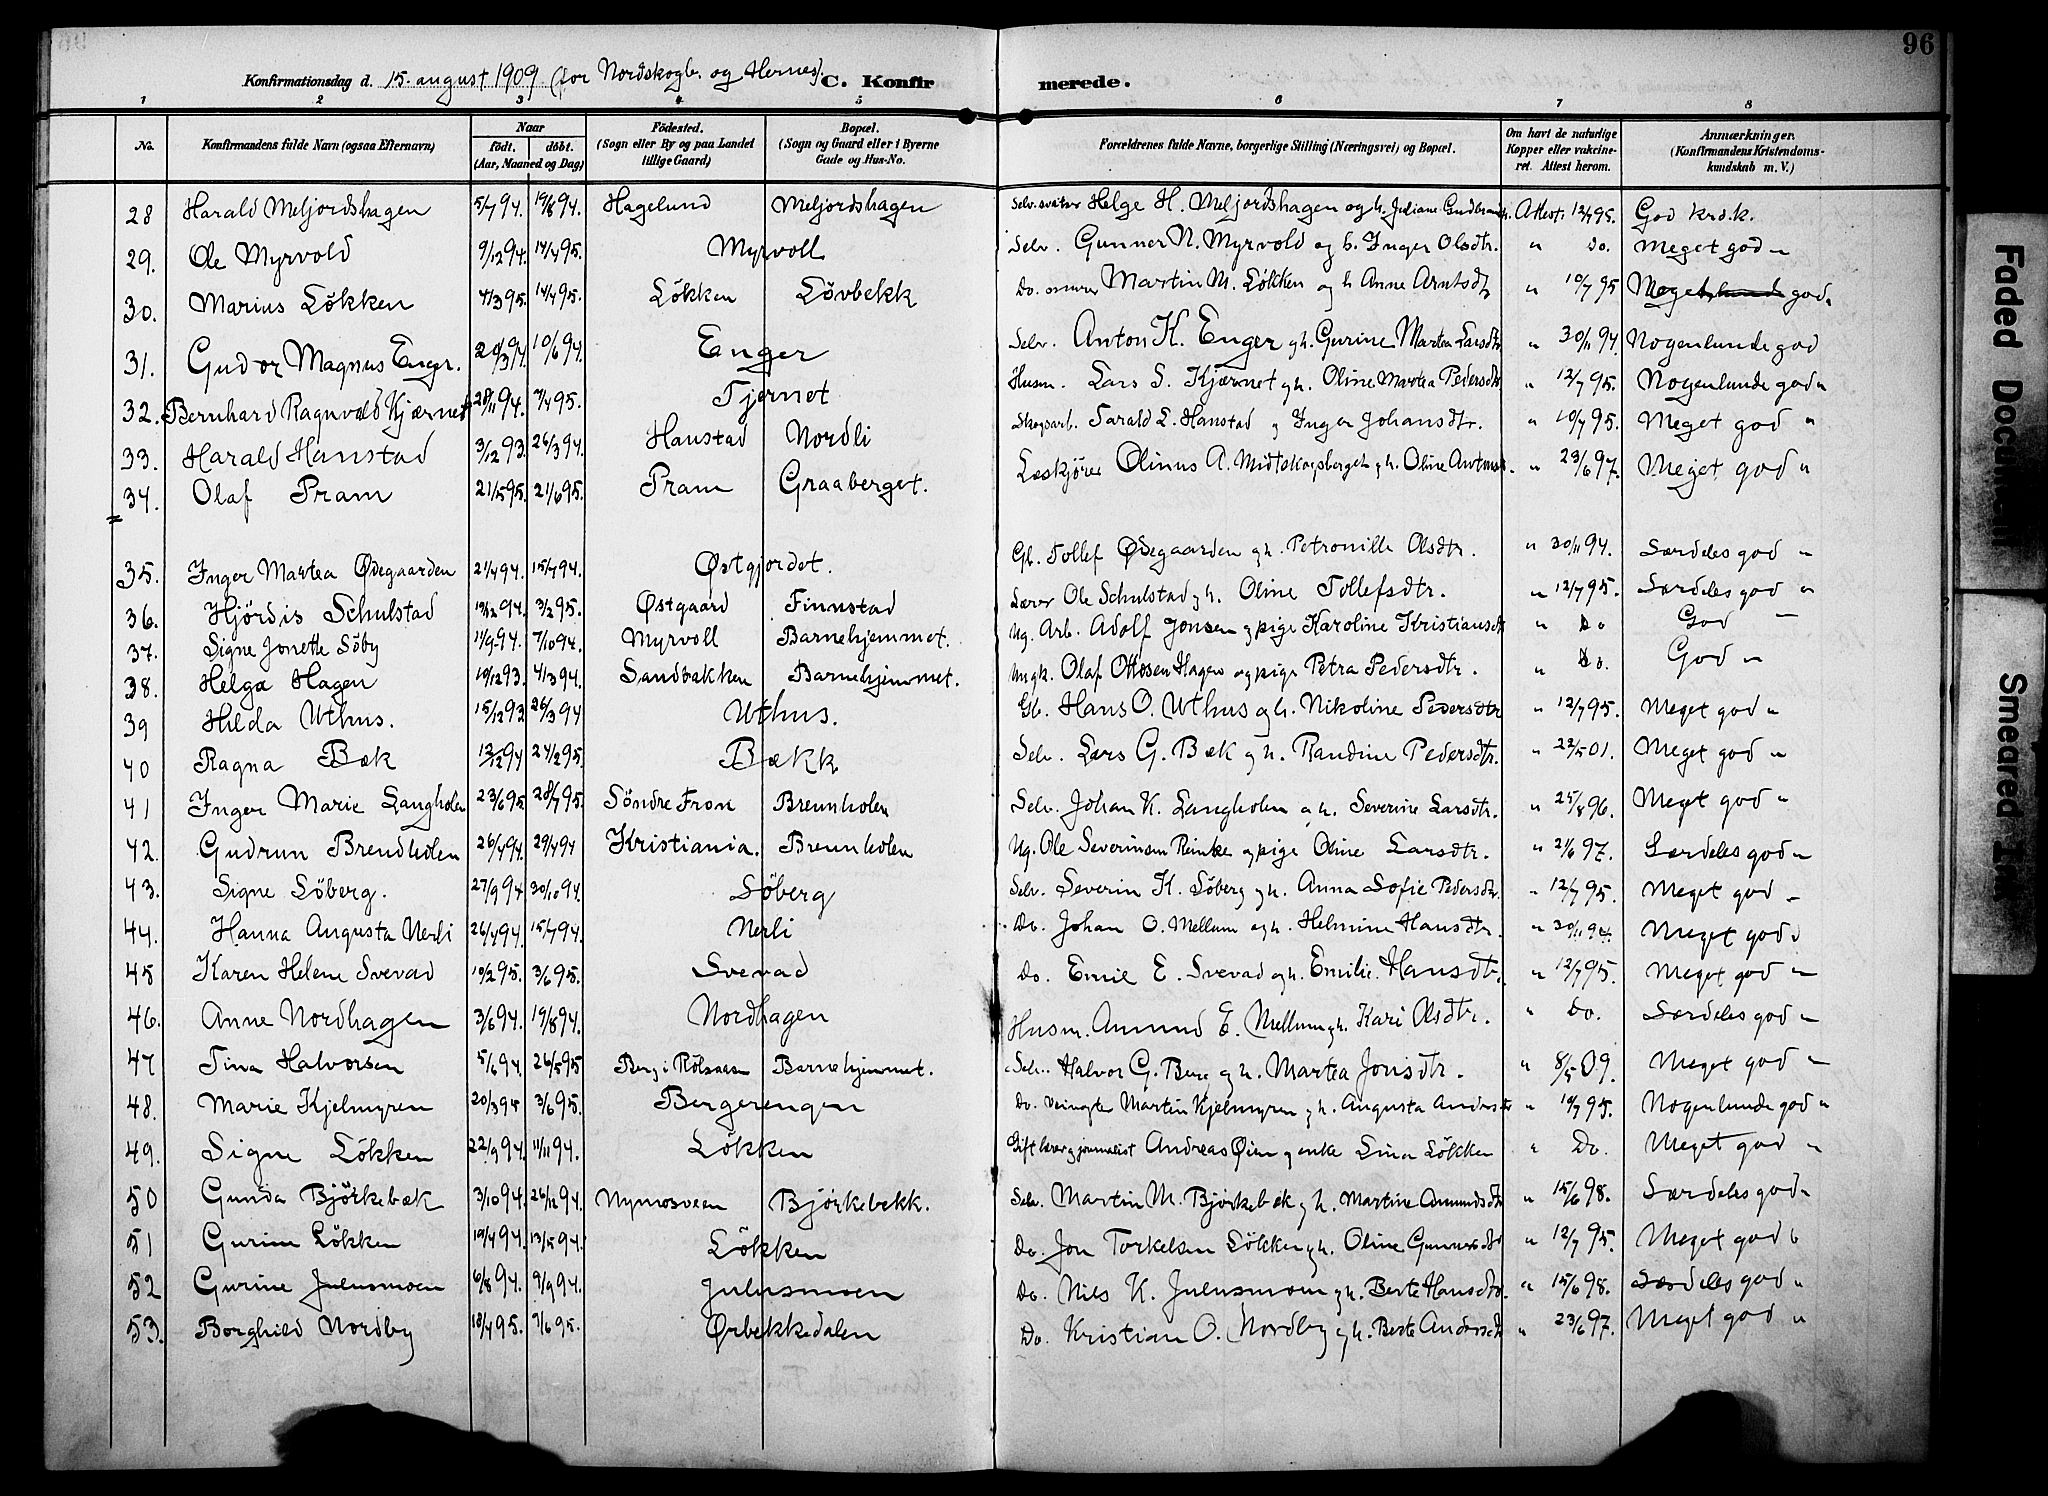 96
Konfirmationsdag d. 15. august 1909 (for Nordskogb. og Hernes). C. Konfirmerede.
1 2 3 4 5 6 7 8
No. Konfirmandens fulde Navn (ogsaa Efternavn) Naar født. døbt. (Aar, Maaned og Dag) Födested. (Sogn eller By og paa Landet tillige Gaard) Bopæl. (Sogn og Gaard eller i Byerne Gade og Hus-No. Forældrenes fulde Navne, borgerlige Stilling (Næringsvei) og Bopæl. Om havt de naturlige Kopper eller vakcineret. Attest herom. Anmærkninger. (Konfirmandens Kristendomskundskab m. V.)
28 Harald Meljordshagen 5/7 94. 19/8 94. Hagelund Meljordshagen Helge H. Meljordshagen og h. Juliane Attest: 12/7 95. God krd.k.
29. Ole Myrvold 9/12 94. 14/4 95. Myrvoll Selv. Gunner N. Myrvold og h. Inger Olsdtr. " Do. Meget god "
30. Marius Løkken 4/3 95. 14/4 95. Løkken Løvbekk Do. Martin M. Løkken og h Anne Arntsdtr " 10/7 95 god "
31. Gudor Magnus Engr. 20/3 94. 10/6 94. Enger Selv. Anton K. Enger og h. Gurine Martea Larsdtr " 30/11 94. Nogenlunde god
32. Bernhard Ragnvald Kjærnet 28/11 94. 7/4 95. Tjernet Husm. Lars S. Kjærnet og h. Oline Martea Pedersdtr " 12/7 95. Nogenlunde god "
33. Harald Hanstad 3/12 93. 26/3 94. Hanstad Nordli Skogsarb. Harald L. Hanstad og Inger Johansdtr. " 10/7 95. Meget god "
34. Olaf Pram 21/5 95. 21/6 95. Pram Graaberget. Læskjører Olinus A. Midtskogsberget og h. Oline " 23/6 97. Meget god "
35. Inger Martea Ødegaarden 21/4 94. 15/7 94. Østgjordet. Gb. Tollef Ødegaarden og h. Petronille Olsdtr. " 30/11 94. Særdeles god "
36. Hjördis Schulstad 19/12 94. 3/2 95. Østgaard Finnstad Lærer Ole Schulstad og h. Oline Tollefsdtr. " 12/7 95. Særdeles god "
37. Signe Jonette Söby 11/9 94. 7/10 94. Myrvoll Barnehjemmet. Ug. Arb. Adolf Jonsen og pige Karoline Kristiansdtr " Do God "
38. Helga Hagen 10/12 93. 4/3 94. Sandbakken Barnehjemmet. Ungk. Olaf Ottosen Hagen og pige Petra Pedersdtr. " Do. God "
39 Hilda Uthus. 15/12 93 26/3 94 Uthus. Gb. Hans O. Uthus og h. Nikoline Pedersdtr " 12/7 95. Meget god "
40 Ragna Bæk 12/12 94 24/2 95. Bækk Selv. Lars G. Bæk og h. Randine Pedersdtr. " 22/5 01. Meget god "
41 Inger Marie Langholen 23/6 95. 28/7 95. Söndre Fron Brennholen Selv. Johan K. Langholen og h. Severine Larsdtr. " 25/8 96. Meget god "
42. Gudrun Brendholen 26/4 94. 29/4 94 Kristiania. Brennholen Ug. Ole Severinsen Reinke og pige Oline Larsdtr. " 21/6 97. Særdeles god "
43. Signe Söberg. 27/9 94 30/10 94. Söberg Selv. Severin K. Söberg og h. Anna Sofie Pedersdtr. " 12/7 95. Meget god "
44. Hanna Augusta Nerli 26/4 94. 15/7 94. Nerli Do. Johan O. Mellum og h. Helmine Hansdtr. " 30/11 94. Meget god "
45 Karen Helene Svevad 10/2 95. 3/6 95. Svevad Do. Emil E. Svevad og h. Emilie Hansdtr. " 12/7 95. Meget god "
46. Anne Nordhagen 3/6 94. 19/8 94. Nordhagen Husm. Amund E. Mellum og h. Kari Olsdtr. " Do. Særdeles god "
47 Tina Halvorsen 5/6 94. 26/5 95 Berg i Barnehjemmet. Selv. Halvor G. Berg og h. Martea Jonsdtr. " 8/5 09. Meget god "
48. Marie Kjelmyren 20/3 95 3/6 95. Bergerengen Do. Veivogter Martin Kjelmyren og h. Augusta Andersdtr " 10/7 95. Nogenlunde god "
49. Signe Løkken 22/9 94. 11/11 94. Løkken Gift lærer og journalist Andreas Øien og enke Lina Løkken " Do. Meget god "
50 Gunda Bjørkebæk 3/10 94. 26/12 94. Nymosveen Bjørkebekk. Selv. Martin M. Bjørkebæk og h. Martine Amundsdtr " 15/6 98. Særdeles god "
51 Gurine Løkken 19/4 94. 13/5 94. Løkken Do. Jon Torkelsen Løkken og h. Oline Gunnersdtr " 12/7 95. Meget god "
52 Gurine Julusmoen 6/8 94. 9/9 94. Julusmoen Do. Nils K. Julusmoen og h. Berte Hansdtr. " 15/6 98. Særdeles god "
53. Borghild Nordby 18/4 95. 7/6 95. Ørbekkedalen Do. Kristian O. Nordby og h. Berte Andersdtr " 23/6 97. Meget god "
Faded Document
Smeared Ink